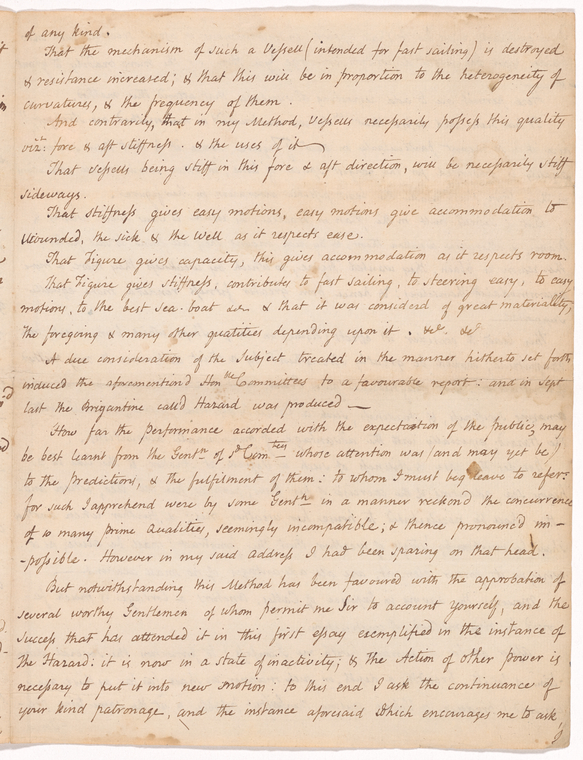 of any kind.
That the mechanism of such a Vessell (intended for fast sailing) is destroyed
& resistance increased; & that this will be in proportion to the heterogeneity of
curvatures, & the frequency of them.
And contrarily, that in my Method, Vessells necessarily possess this quality
viz: fore & aft stiffness. & the uses of it
That Vessells being stiff in this fore & aft direction, will be necessarily stiff
sideways.
That stiffness gives easy motions, easy motions give accommodation to
Wounded, the sick, & the well as it respects ease.
That Figure gives capacity, this gives accommodation as it respects room.
That Figure gives stiffness, contributes to fast sailing, to steering easy, to easy
motions, to the best sea-boat &c. & that it was considerd of great materiallity,
the foregoing & many other quatities depending upon it. &c. &c
A due consideration of the Subject treated in the manner hitherto set forth
induced the aforementiond Honble Committees to a favourable report: and in Sept
last the Brigantine calld Hazard was produced —
How far the performance accorded with the expectation of the public, may
be best learnt from the Gentn of sd Comtees whose attention was (and may yet be)
to the predictions, & the fulfilment of them: to whom I must beg leave to refer:
for such I apprehend were by some Gentn in a manner reckond the concurrence
of so many prime Qualities, seemingly incompatible; & thence pronounc'd im-
-possible. However in my said Address I had been sparing on that head.
But notwithstanding this Method has been favoured with the approbation of
several worthy Gentlemen of whom permit me Sir to account yourself, and the
success that has attended it in this first essay exemplified in the instance of
the Hazard: it is now in a state of inactivity; & the Action of other power is
necessary to put it into new motion: to this end I ask the continuance of
your kind patronage, and the instance aforesaid which encourages me to ask